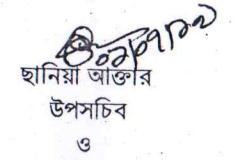 ছানিয়া আক্তার
উপসচিব
ও